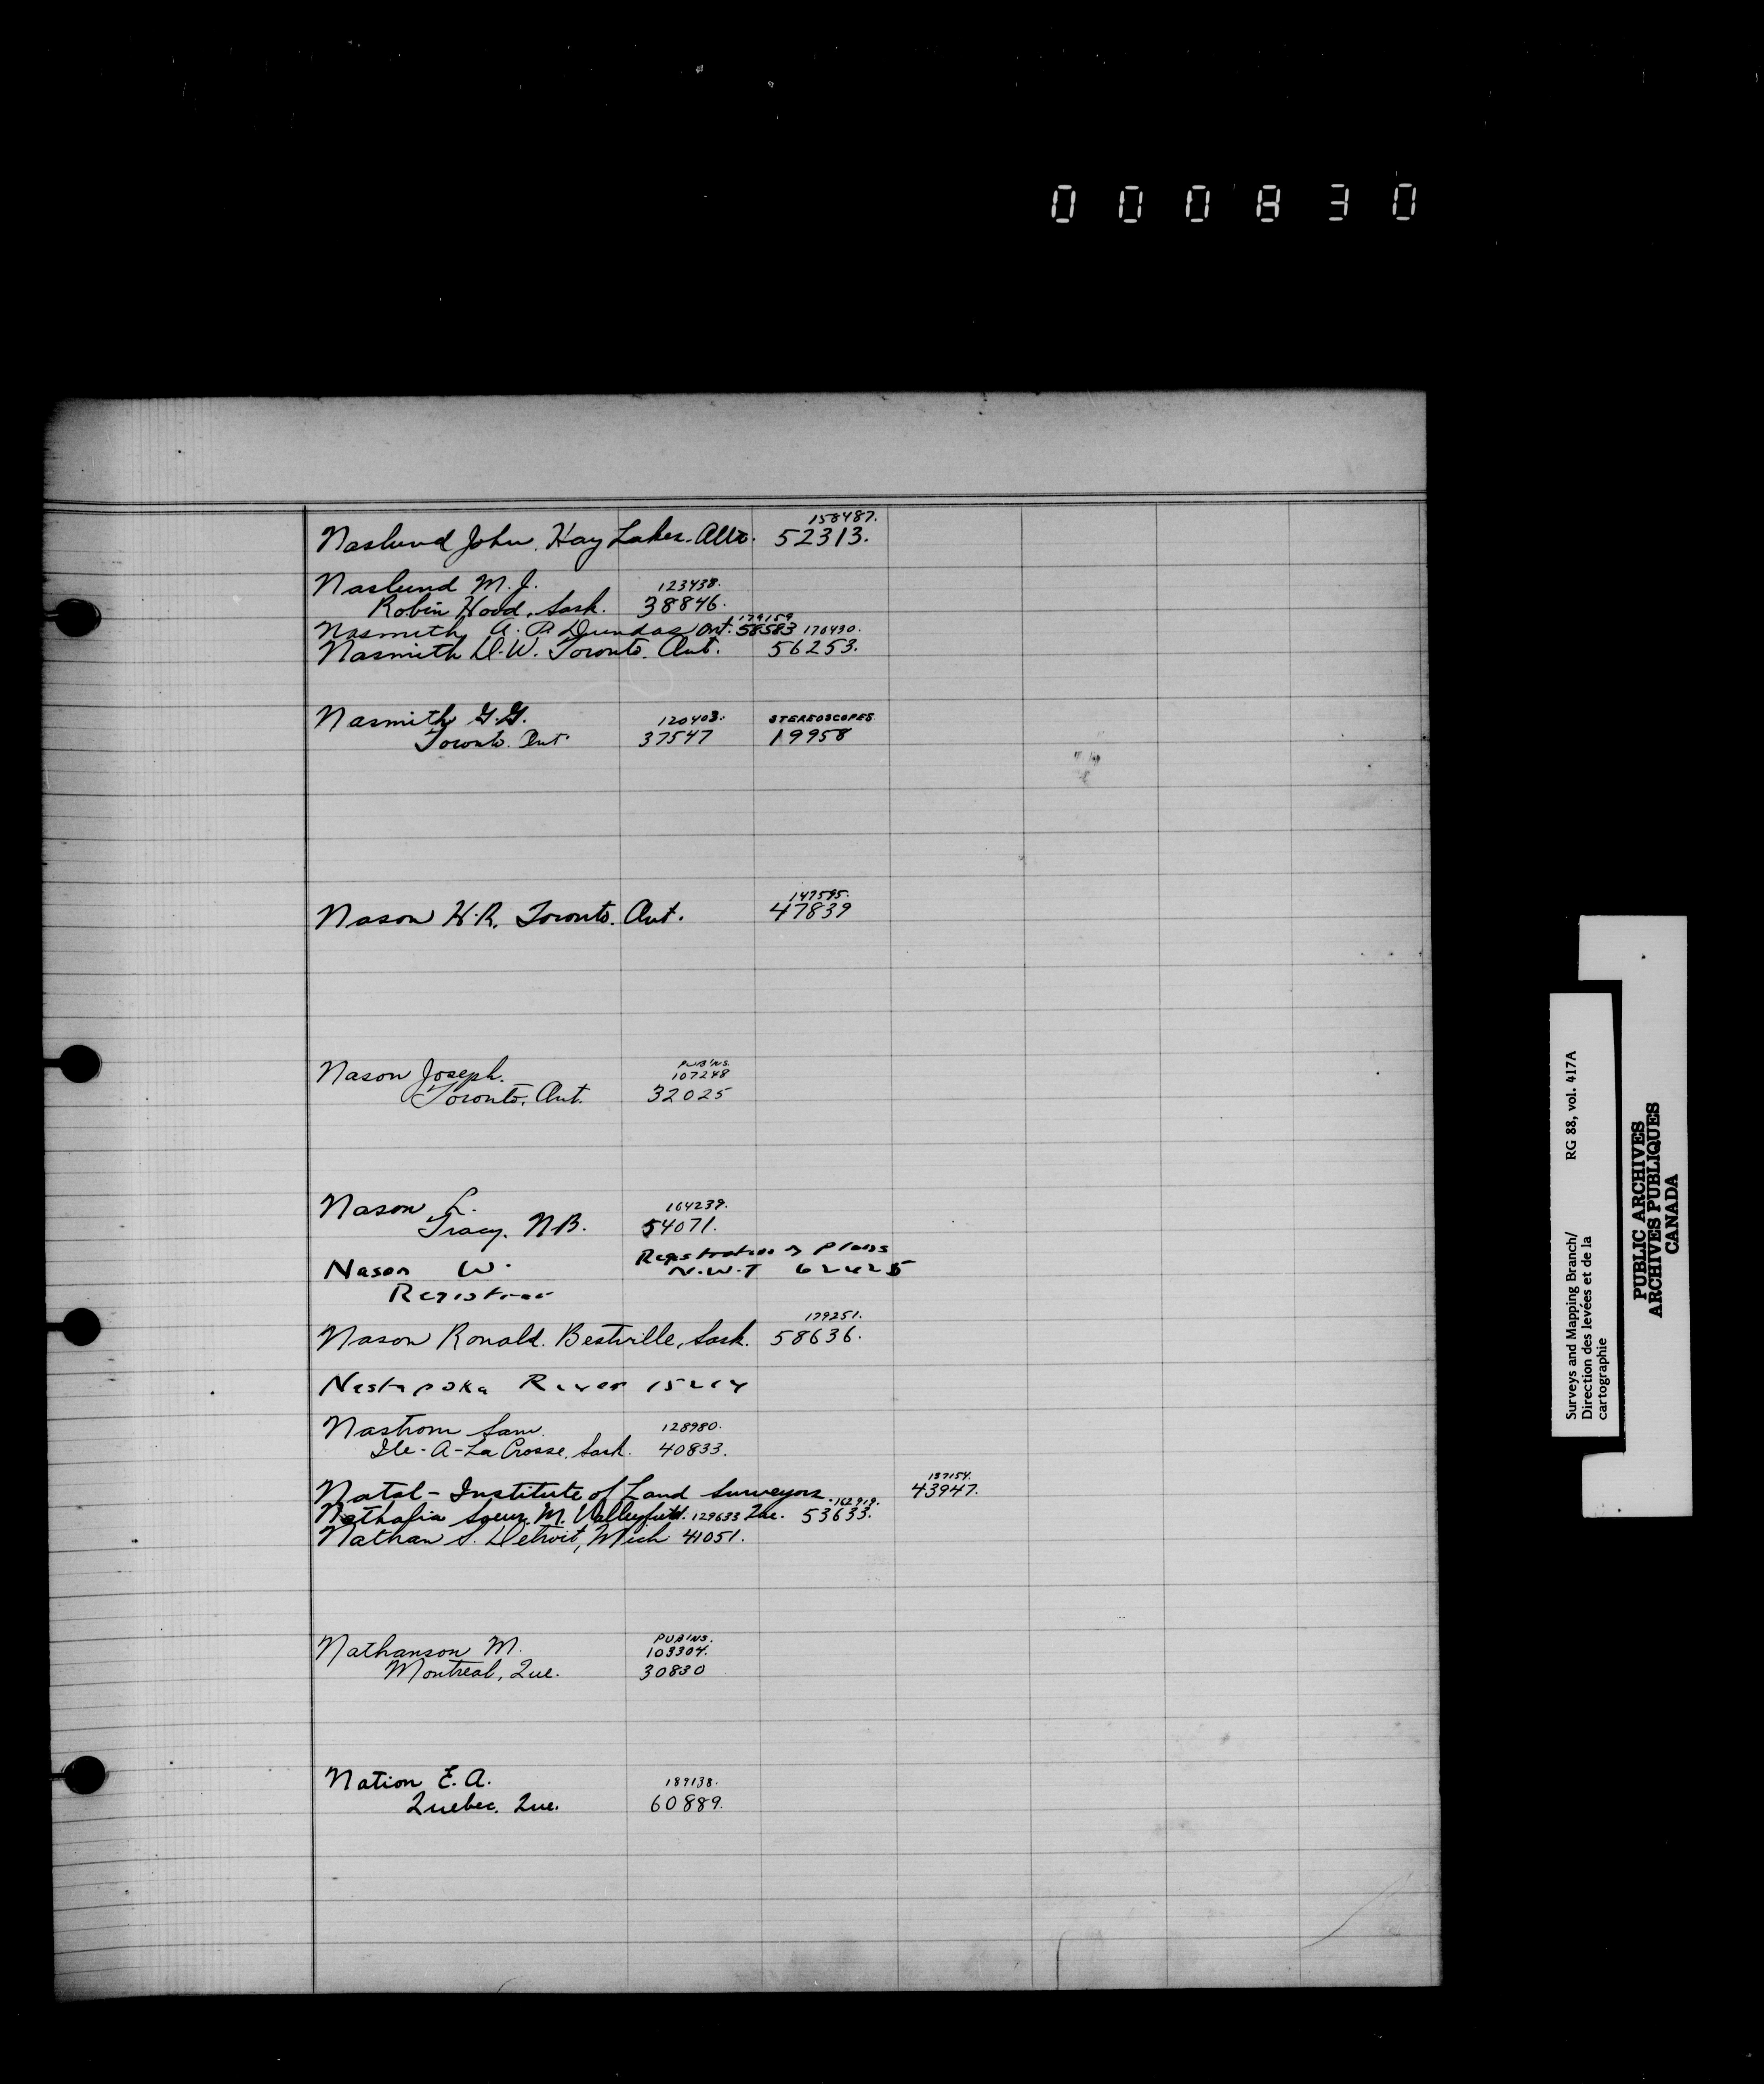 000830
158487.
Naslund John. Hay Lakes. Alta. 52313.
Naslund M. J. 123438.
Robin Hood, Sask. 38846.
179159
Nasmith A. P. Dundas Ont. 58583 170430.
Nasmith D. W. Toronto. Ont. 56253.
Nasmith G. G. 120403. STEREOSCOPES
Toronto. Ont. 37547 19958
147595.
Nason H. R. Toronto. Ont. 47839
PUB'NS.
Nason Joseph. 107248
Toronto, Ont. 32025
Nason L. 164239.
Tracy. N.B. 54071.
Registration of Plans
Nason W. N.W.T 62425
Registrar
179251.
Nason Ronald. Bestville, Sask. 58636.
Nastapoka River 15214
Nastrom Sam. 128980.
Ile-A-La Crosse, Sask. 40833.
137154.
Natal - Institute of Land Surveyors 43947.
162919.
Nathalia Soeur. M. Valleyfield. 129633 Que. 53633.
Nathan S. Detroit, Mich 41051.
PUB'NS.
Nathanson M. 103304.
Montreal, Que. 30830
Nation E. A. 189138.
Quebec. Que. 60889.
Surveys and Mapping Branch/ RG 88, vol. 417A
Direction des levées et de la
cartographie
PUBLIC ARCHIVES
ARCHIVES PUBLIQUES
CANADA